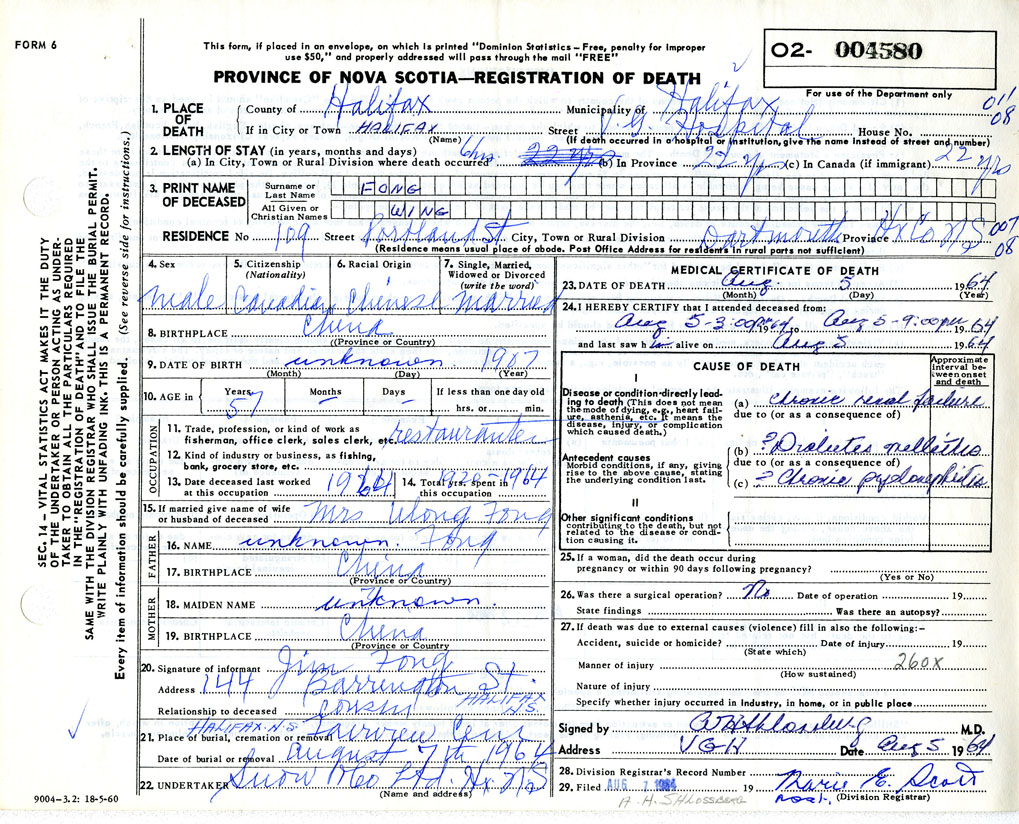 FORM 6
This form, if placed in an envelope, on which is printed "Dominion Statistics – Free, penalty for improper
use $50," and properly addressed will pass through the mail "FREE"
PROVINCE OF NOVA SCOTIA—REGISTRATION OF DEATH
O2- 004580
For use of the Department only
011
08
1. PLACE OF DEATH { County of Halifax Municipality of Halifax
If in City or Town HALIFAX Street V.G. Hospital House No.
(Name) (If death occurred in a hospital or institution, give the name instead of street and number)
2. LENGTH OF STAY (in years, months and days)
(a) In City, Town or Rural Division where death occurred 6 hrs. 22 yrs (b) In Province 22 yrs (c) In Canada (if immigrant) 22 yrs
3. PRINT NAME OF DECEASED
Surname or Last Name FONG
All Given or Christian Names WING
RESIDENCE No 109 Street Portland St. City, Town or Rural Division Dartmouth Province Hx Co NS 007
08
(Residence means usual place of abode. Post Office Address for residents in rural parts not sufficient)
4. Sex male
5. Citizenship (Nationality) Canadian
6. Racial Origin Chinese
7. Single, Married, Widowed or Divorced (write the word) married
8. BIRTHPLACE China
(Province or Country)
9. DATE OF BIRTH unknown 1907
(Month) (Day) (Year)
10. AGE in { Years 57 Months – Days – If less than one day old
hrs. or min.
OCCUPATION
11. Trade, profession, or kind of work as
fisherman, office clerk, sales clerk, etc. restauranter
12. Kind of industry or business, as fishing,
bank, grocery store, etc.
13. Date deceased last worked
at this occupation 1964
14. Total yrs. spent in
this occupation 1926-1964
15. If married give name of wife
or husband of deceased Mrs Wong Fong
FATHER
16. NAME unknown. Fong
17. BIRTHPLACE China
(Province or Country)
MOTHER
18. MAIDEN NAME unknown.
19. BIRTHPLACE China
(Province or Country)
20. Signature of informant Jim Fong
Address 144 Barrington St. HALIFAX N.S.
Relationship to deceased cousin
HALIFAX N.S
21. Place of burial, cremation or removal Fairview Cem
Date of burial or removal August 7th 1964
22. UNDERTAKER Snow & Co Ltd. Hx. N.S
(Name and address)
MEDICAL CERTIFICATE OF DEATH
23. DATE OF DEATH Aug. 5 1964
(Month) (Day) (Year)
24. I HEREBY CERTIFY that I attended deceased from:
Aug 5 - 3:00 pm 1964 to Aug 5 - 9:00 pm 1964
and last saw him alive on Aug 5 1964
CAUSE OF DEATH
Approximate interval between onset and death
I
Disease or condition directly leading to death (This does not mean
the mode of dying, e.g., heart failure, asthenia, etc. It means the
disease, injury, or complication
which caused death.)
(a) chronic renal failure
due to (or as a consequence of)
Antecedent causes
Morbid conditions, if any, giving
rise to the above cause, stating
the underlying condition last.
(b) ? Diabetes mellitis
due to (or as a consequence of)
(c) ? Chronic pyelonephitis
II
Other significant conditions
contributing to the death, but not
related to the disease or condition causing it.
25. If a woman, did the death occur during
pregnancy or within 90 days following pregnancy?
(Yes or No)
26. Was there a surgical operation? No Date of operation 19
State findings Was there an autopsy?
27. If death was due to external causes (violence) fill in also the following:–
Accident, suicide or homicide? Date of injury 19
(State which)
Manner of injury 260X
(How sustained)
Nature of injury
Specify whether injury occurred in industry, in home, or in public place
Signed by M.D.
Address VGH Date Aug 5 1964
28. Division Registrar's Record Number
29. Filed AUG 7 1964 19 Marie E. Scott
(Division Registrar)
A. H. SHLOSSBERG
SEC. 14 – VITAL STATISTICS ACT MAKES IT THE DUTY
OF THE UNDERTAKER OR PERSON ACTING AS UNDERTAKER TO OBTAIN ALL THE PARTICULARS REQUIRED
IN THE "REGISTRATION OF DEATH" AND TO FILE THE
SAME WITH THE DIVISION REGISTRAR WHO SHALL ISSUE THE BURIAL PERMIT.
WRITE PLAINLY WITH UNFADING INK. THIS IS A PERMANENT RECORD.
Every item of information should be carefully supplied. (See reverse side for instructions.)
9004-3.2: 18-5-60